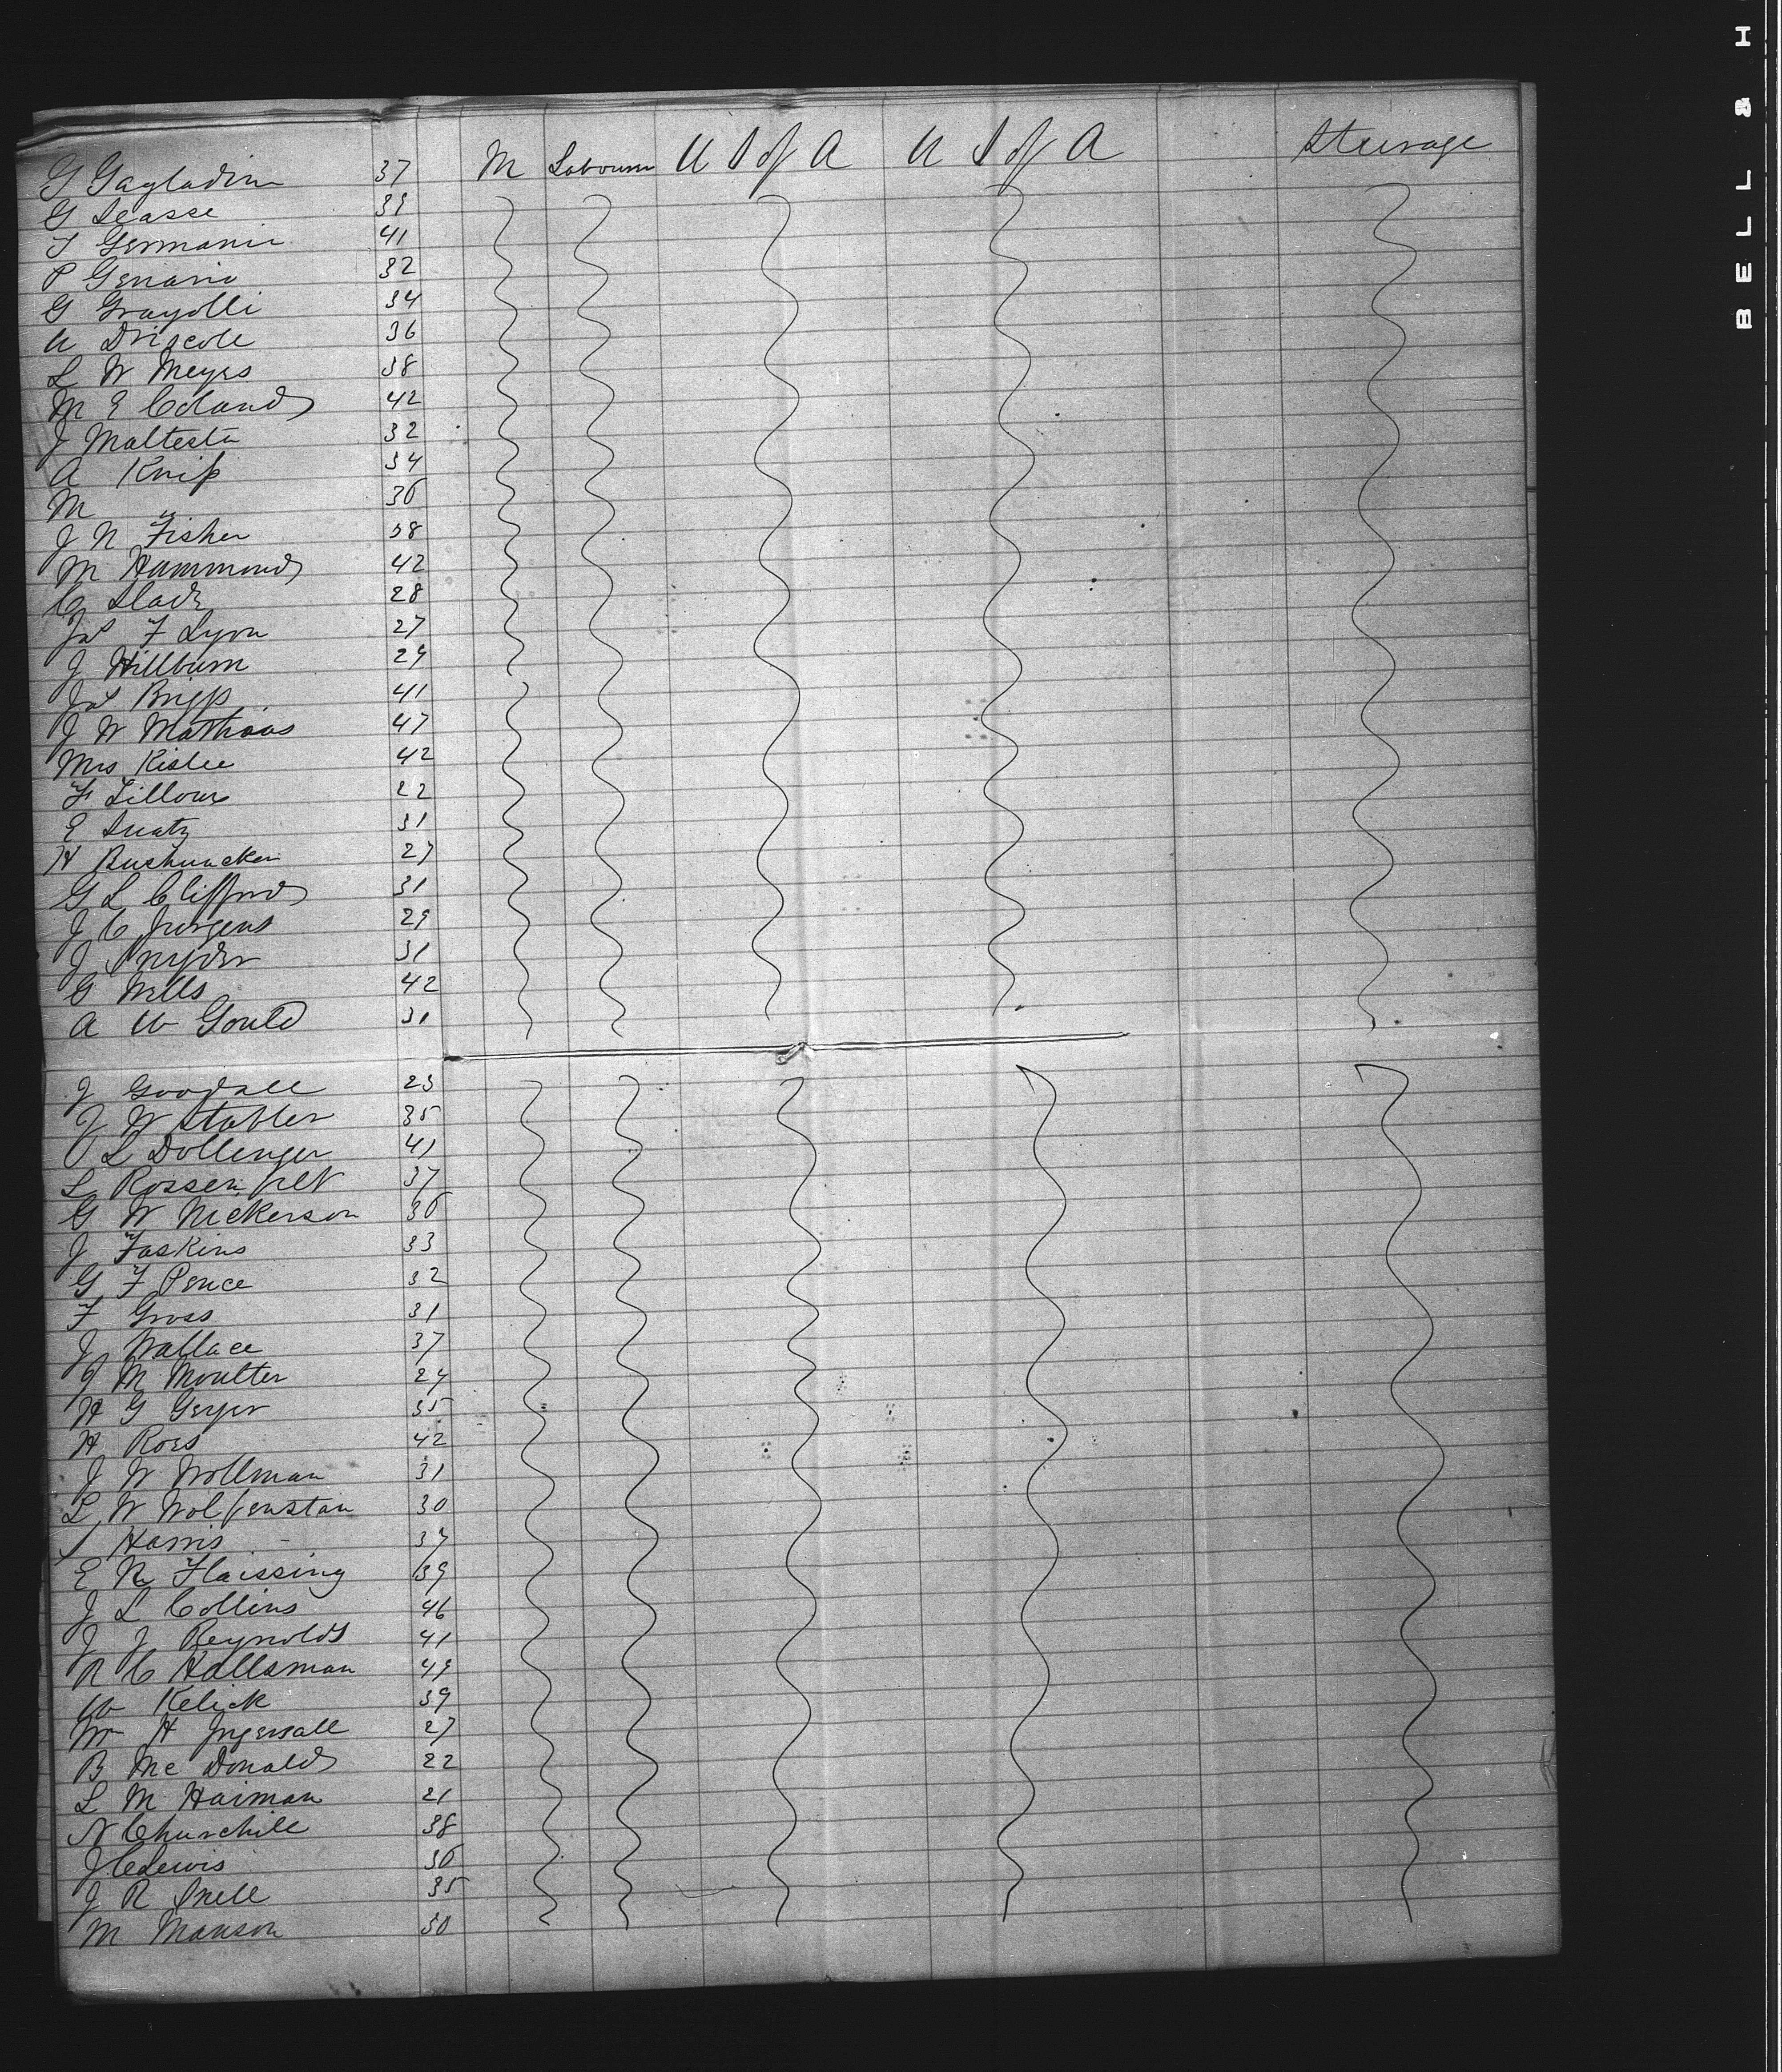 G Gagladini 37 M Labourer U S of A U S of A Steerage
G Seasse 39
T Germanie 41
P Genario 32
G Grayolli 34
U Driscole 36
L W Meyrs 38
M E Coland 42
J Maltesta 32
A Knip 34
M " 36
J N Fisher 38
M Hammond 42
C Slack 28
Jas F Lyon 27
J Hillburn 29
Jas Brigp 41
J W Mathias 47
Mrs Kislee 42
F Lillour 22
E Suatz 31
H Bushnacker 27
G L Clifford 31
J C Jurgens 29
J Snyder 31
G Wells 42
A W Gould 31
J Goodall 23
J W Stabler 35
J L Dollenger 41
L Rossen felt 37
G W Nickerson 36
J Faskins 33
G F Pence 32
F Gross 31
J Wallace 37
J M Moulter 24
H G Geyer 35
H Roes 42
J W Wollman 31
L W Wolfenstan 30
S Harris 34
E N Flaissing 39
J L Collins 46
J J Reynolds 41
R C Hallsman 49
W Kelick 39
Wm H Ingersall 27
B Mc Donald 22
L M Haiman 21
N Churchill 38
J C Lewis 36
J R Snell 35
M Manson 30
BELL & H